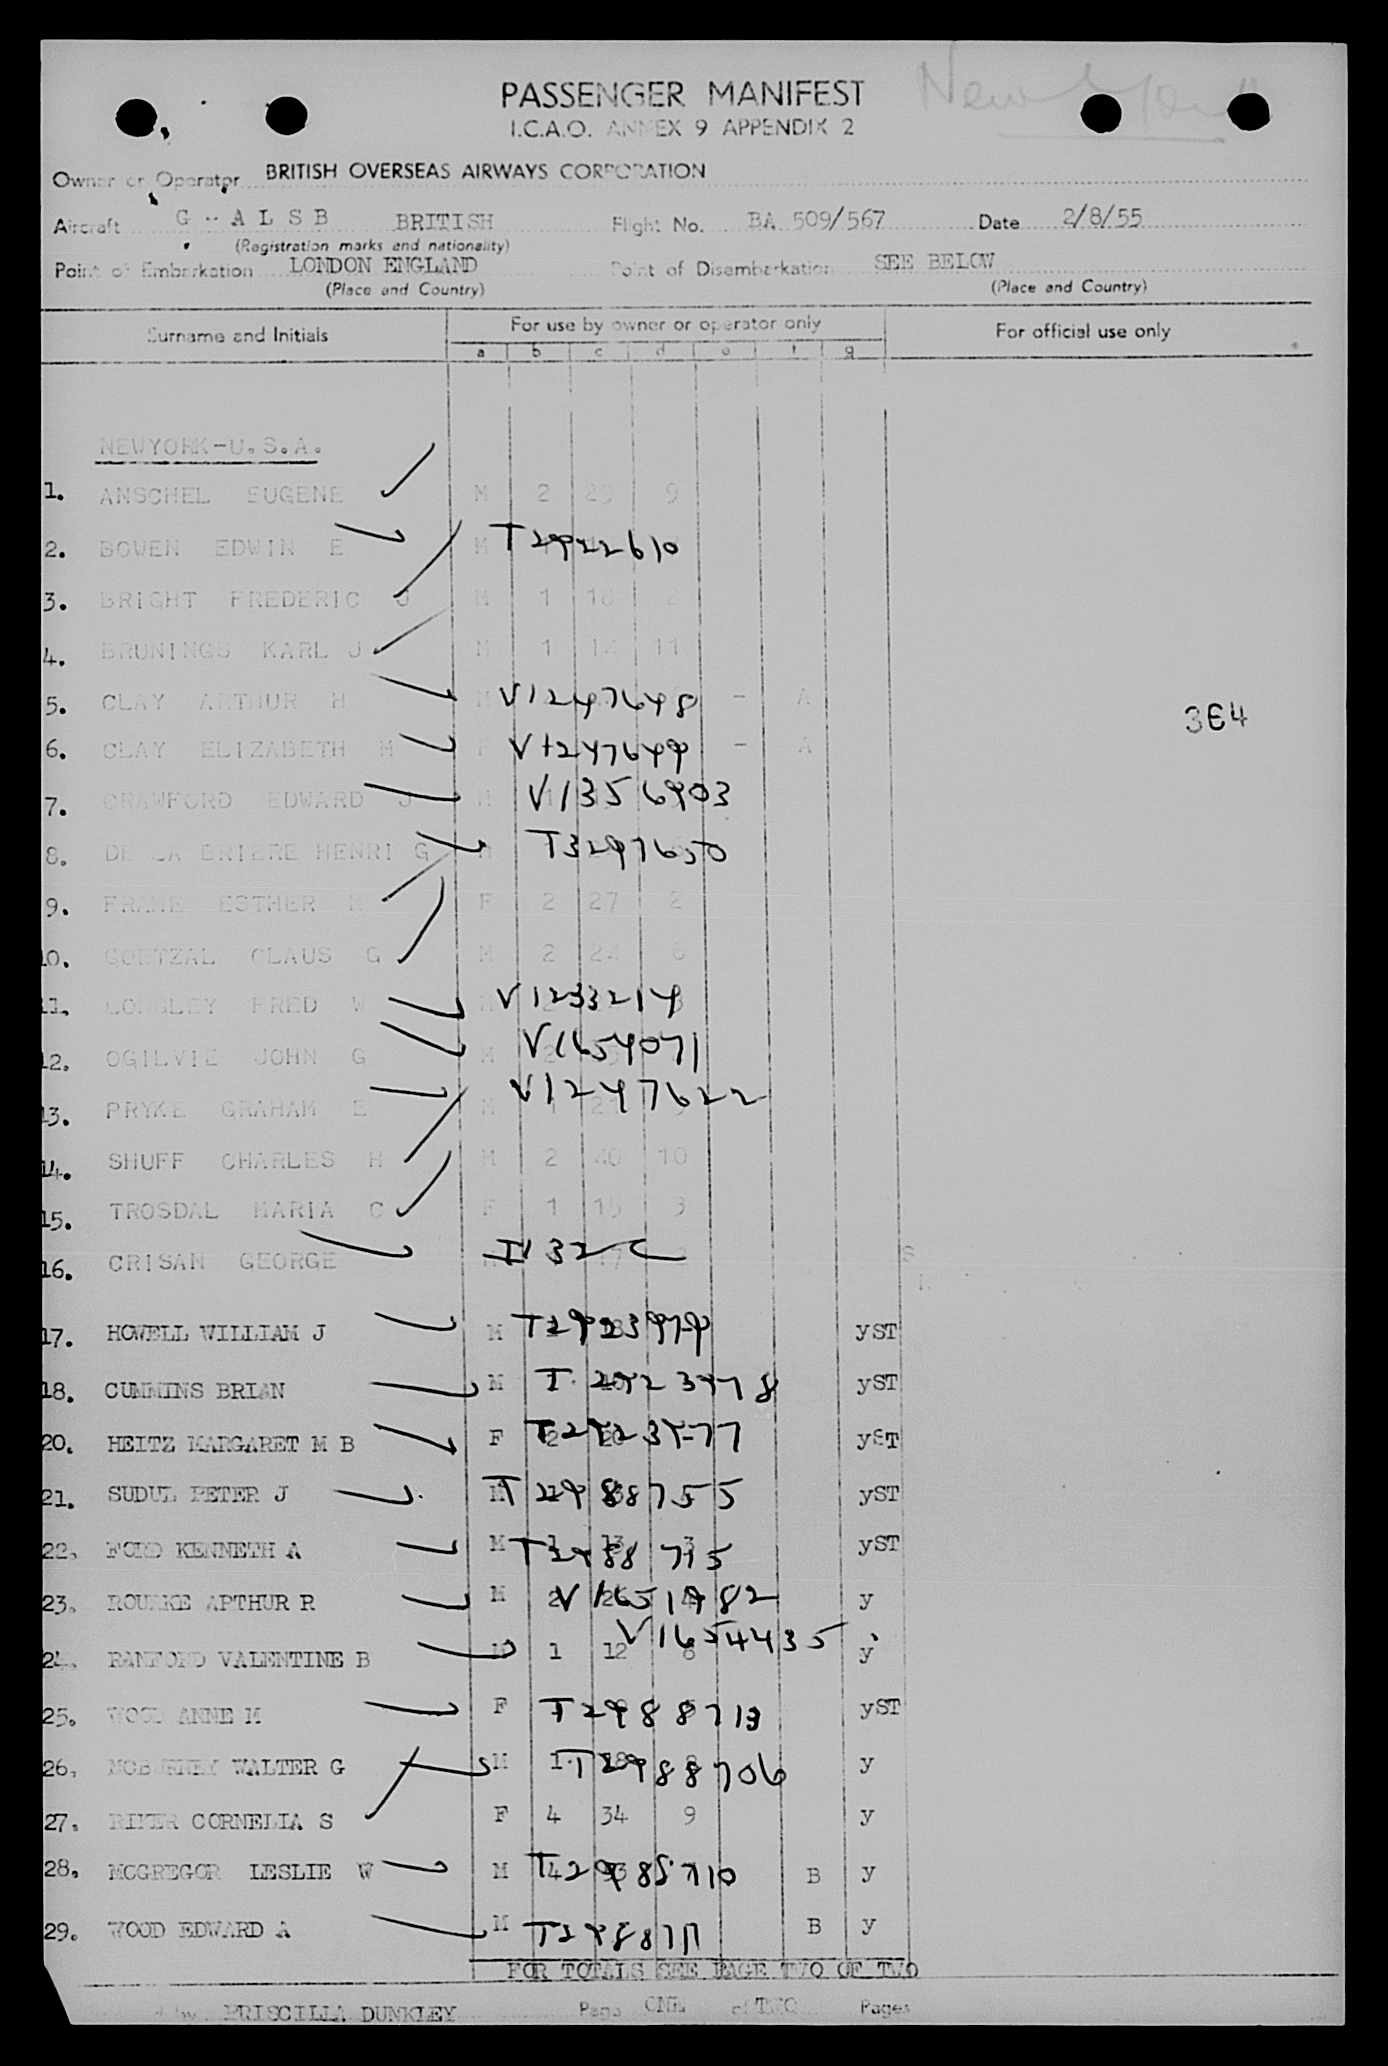 New York
PASSENGER MANIFEST
I.C.A.O. ANNEX 9 APPENDIX 2
Owner or Operator BRITISH OVERSEAS AIRWAYS CORPORATION
Aircraft G-ALSB BRITISH Flight No. BA 509/567 Date 2/8/55
(Registration marks and nationality)
Point of Embarkation LONDON ENGLAND Point of Disembarkation SEE BELOW
(Place and Country) (Place and Country)
Surname and Initials For use by owner or operator only For official use only
a b c d e f g
NEWYORK-U.S.A.
1. ANSCHEL EUGENE M 2 29 9
2. BOWEN EDWIN E M T2922610
3. BRIGHT FREDERIC J M 1 18 2
4. BRUNINGS KARL J M 1 14 11
5. CLAY ARTHUR H M V1247648 - A
364
6. CLAY ELIZABETH M F V1247649 - A
7. CRAWFORD EDWARD J M V1356903
8. DE LA BRIERE HENRI G M T3297650
9. FRAME ESTHER F 2 27 2
10. GOETZAL CLAUS G M 2 24 6
11. LONGLEY FRED W M V1233214
12. OGILVIE JOHN G M V1654071
13. PRYKE GRAHAM E M V1247622
14. SHUFF CHARLES H M 2 40 10
15. TROSDAL MARIA C F 1 15 3
16. CRISAN GEORGE S
17. HOWELL WILLIAM J M T2923979 yST
18. CUMMINS BRIAN M T2923978 yST
20. HEITZ MARGARET M B F T2923977 yST
21. SUDUL PETER J M T2988755 yST
22. FORD KENNETH A M T2988715 yST
23. ROURKE ARTHUR R M V1651982 y
24. RANFORD VALENTINE B M 1 12 8 V1654435 y
25. WOOD ANNE M F T2988713 yST
26. MCBURNEY WALTER G M T2988706 y
27. RIKER CORNELIA S F 4 34 9 y
28. MCGREGOR LESLIE W M T2988710 B y
29. WOOD EDWARD A M T2988711 B y
FOR TOTALS SEE PAGE TWO OF TWO
by PRISCILLA DUNKLEY Page ONE of TWO Pages